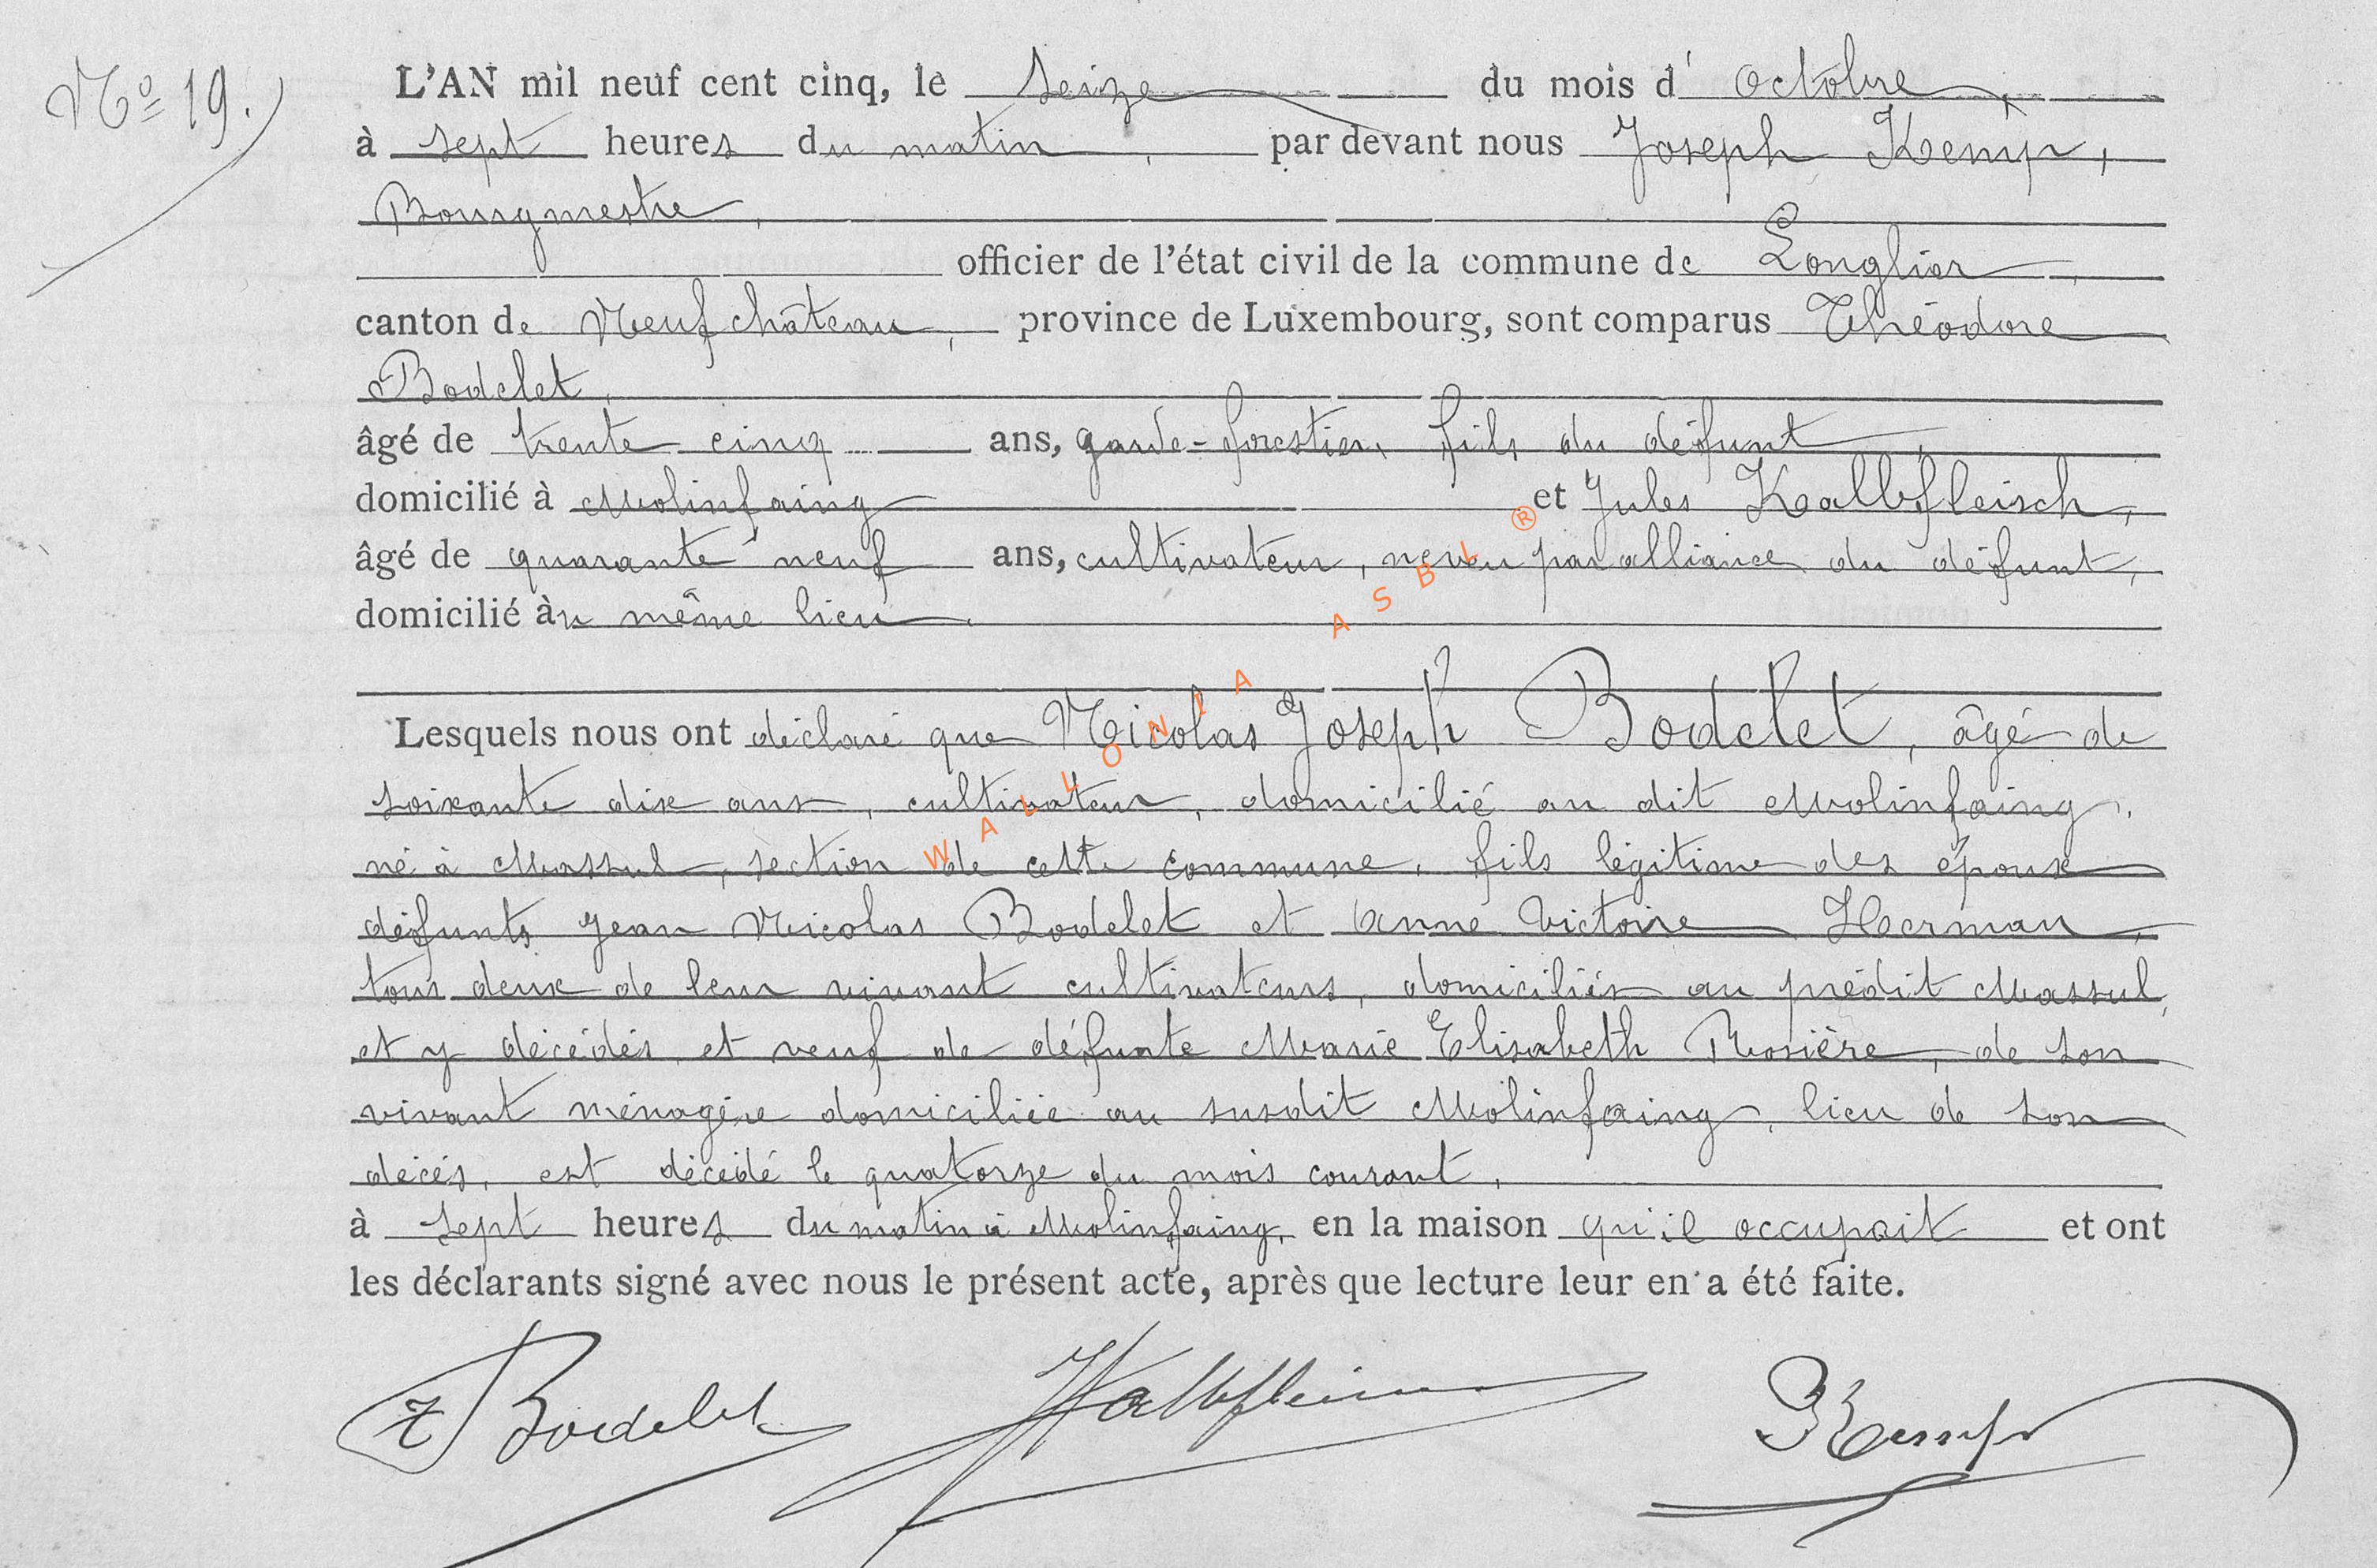 Nº 19.
L'AN mil neuf cent cinq, le seize du mois d'Octobre,
à sept heures du matin, par devant nous Joseph Kemp,
Bourgmestre,
officier de l'état civil de la commune de Longlier,
canton de Neufchâteau, province de Luxembourg, sont comparus Théodore
Bodelet,
âgé de trente cinq ans, garde-forestier, fils du défunt,
domicilié à Molinfaing et Jules Kalbfleisch,
âgé de quarante neuf ans, cultivateur, neveu par alliance du défunt,
domicilié au même lieu.
Lesquels nous ont déclaré que Nicolas Joseph Bodelet, âgé de
soixante dix ans, cultivateur, domicilié au dit Molinfaing,
né à Massul, section de cette commune, fils légitime des époux
défunts Jean Nicolas Bodelet et Anne Victoire Herman,
tous deux de leur vivant cultivateurs, domiciliés au prédit Massul,
et y décédés, et veuf de défunte Marie Elisabeth Rosière, de son
vivant ménagère domiciliée au susdit Molinfaing, lieu de son
décès, est décédé le quatorze du mois courant,
à sept heures du matin à Molinfaing, en la maison qu'il occupait et ont
les déclarants signé avec nous le présent acte, après que lecture leur en a été faite.
T Bodelet Kalbfleisch J Kemp
WALLONIA ASBL ®